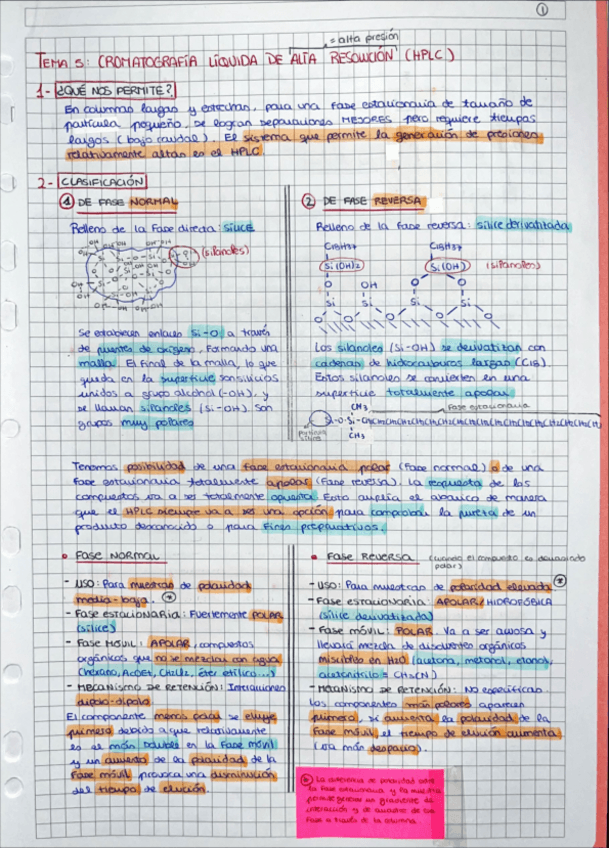 1
= alta presión
TEMA 5: CROMATOGRAFÍA LÍQUIDA DE ALTA RESOLUCIÓN (HPLC)
1- ¿QUÉ NOS PERMITE?
En columnas largas y estrechas, para una fase estacionaria de tamaño de
partícula pequeño, se logran separaciones MEJORES pero requiere tiempos
largos (bajo caudal). El sistema que permite la generación de presiones
relativamente altas es el HPLC.
2- CLASIFICACIÓN
1 DE FASE NORMAL
Relleno de la fase directa: SÍLICE
(silanoles)
Se establecen enlaces Si-O a través
de puentes de oxígeno, formando una
malla. El final de la malla, lo que
queda en la superficie son silicios
unidos a grupo alcohol (-OH), y
se llaman silanoles (Si-OH). Son
grupos muy polares
2 DE FASE REVERSA
Relleno de la fase reversa: sílice derivatizada
C18H37 C18H37
Si(OH)2 Si(OH) (silanoles)
O OH O O
Si Si Si Si
Los silanoles (Si-OH) se derivatizan con
cadenas de hidrocarburos largas (C18).
Estos silanoles se convierten en una
superficie totalmente apolar.
Fase estacionaria
CH3
CH3
Tenemos posibilidad de una fase estacionaria polar (fase normal) o de una
fase estacionaria totalmente apolar (fase reversa). La respuesta de los
compuestos va a ser totalmente opuesta. Esto amplía el abanico de manera
que el HPLC siempre va a ser una opción para comprobar la pureza de un
producto desconocido o para fines preparativos.
• FASE NORMAL
- USO: Para muestras de polaridad
media-baja. *
- FASE ESTACIONARIA: Fuertemente POLAR
(sílice)
- FASE MÓVIL: APOLAR, compuestos
orgánicos que no se mezclan con agua
(hexano, AcOEt, CH2Cl2, éter etílico...)
- MECANISMO DE RETENCIÓN: Interacciones
dipolo-dipolo
El componente menos polar se eluye
primero debido a que relativamente
es el más soluble en la fase móvil
y un aumento de la polaridad de la
fase móvil, provoca una disminución
del tiempo de elución.
• FASE REVERSA (cuando el compuesto es demasiado
polar)
- USO: Para muestras de polaridad elevada *
- FASE ESTACIONARIA: APOLAR / HIDROFÓBICA
(sílice derivatizada)
- FASE MÓVIL: POLAR. Va a ser acuosa y
llevará mezcla de disolventes orgánicos
miscibles en H2O (acetona, metanol, etanol,
acetonitrilo = CH3CN)
- MECANISMO DE RETENCIÓN: No específicas
Los componentes más polares aparecen
primero, si aumenta la polaridad de la
fase móvil, el tiempo de elución aumenta
(va más despacio).
* La diferencia de polaridad entre
la fase estacionaria y la muestra